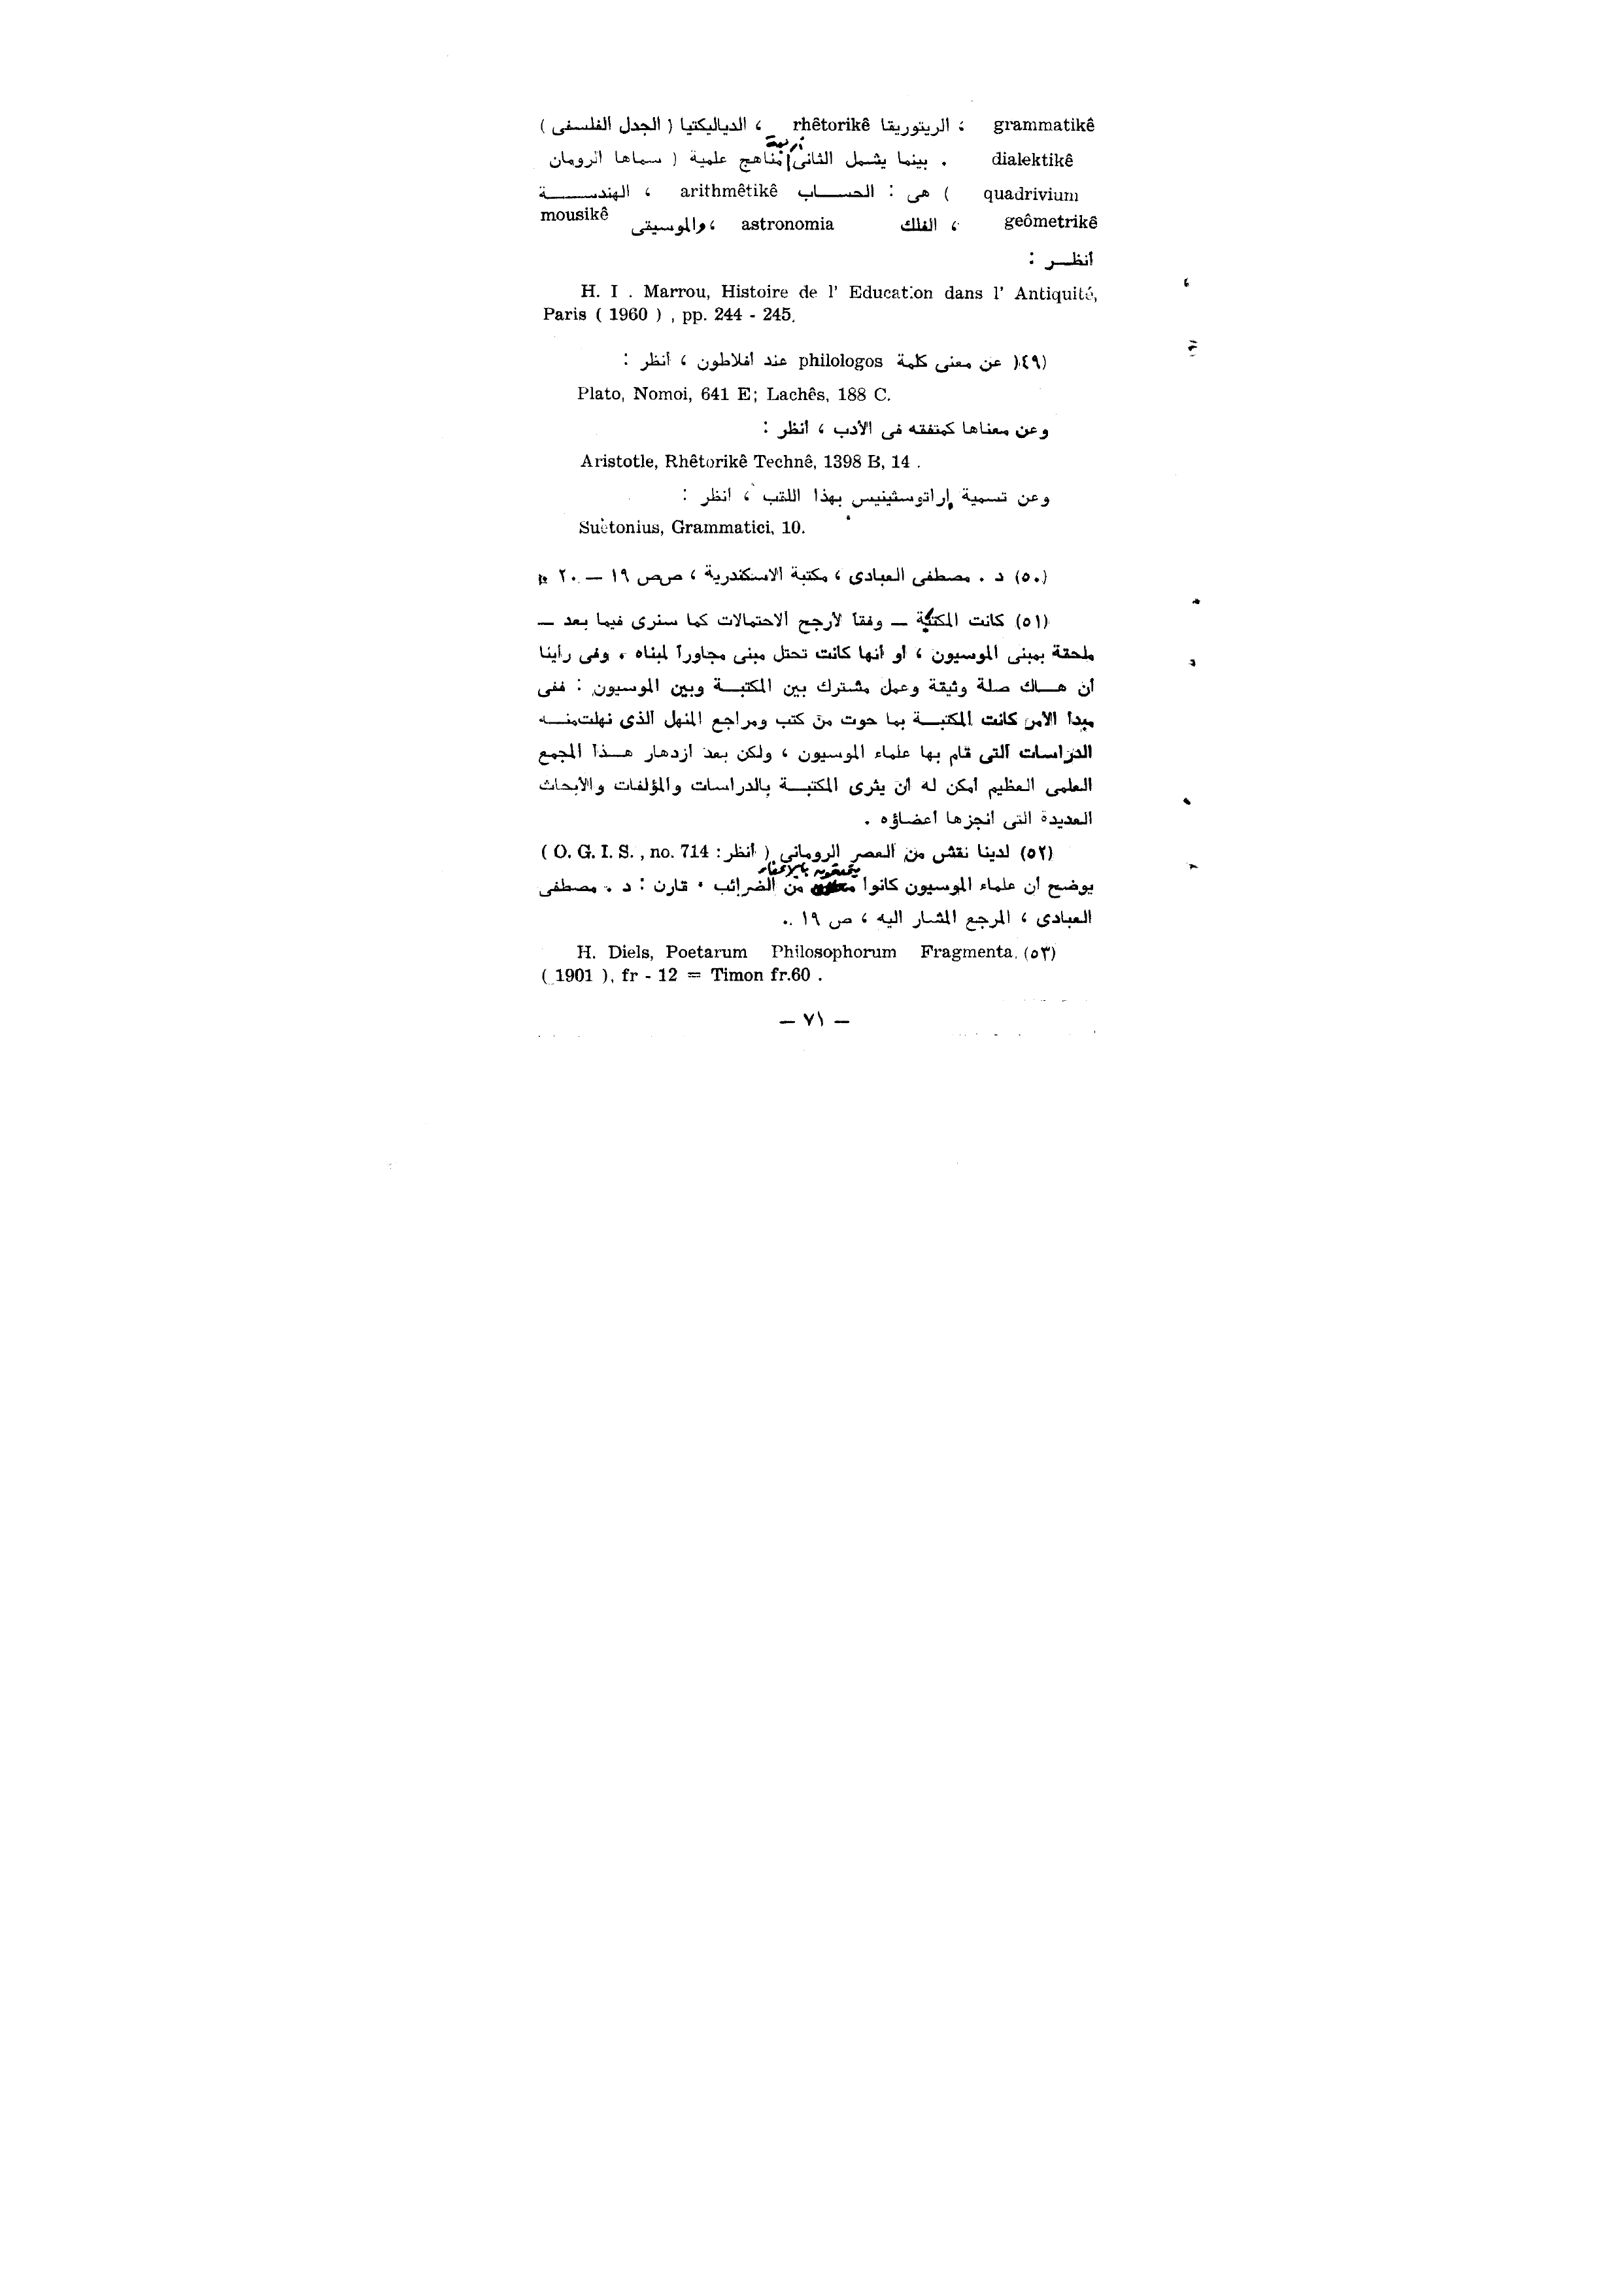 grammatikê ، الريتوريقا rhêtorikê ، الدياليكتيا ( الجدل الفلسفى )
أربعة
dialektikê . بينما يشمل الثانى مناهج علمية ( سماها الرومان
quadrivium ) هى : الحساب arithmêtikê ، الهندسة
geômetrikê ، الفلك astronomia ، والموسيقى mousikê
أنظر :
H. I . Marrou, Histoire de l' Education dans l' Antiquité,
Paris ( 1960 ) , pp. 244 - 245.
(٤٩( عن معنى كلمة philologos عند أفلاطون ، أنظر :
Plato, Nomoi, 641 E; Lachês, 188 C.
وعن معناها كمتفقه فى الأدب ، أنظر :
Aristotle, Rhêtorikê Technê, 1398 B, 14 .
وعن تسمية إراتوسثينيس بهذا اللقب ، انظر :
Suetonius, Grammatici, 10.
(٥٠) د . مصطفى العبادى ، مكتبة الاسكندرية ، صص ١٩ — ٢٠
(٥١) كانت المكتبة — وفقا لأرجح الاحتمالات كما سنرى فيما بعد —
ملحقة بمبنى الموسيون ، أو انها كانت تحتل مبنى مجاورا لمبناه . وفى راينا
أن هناك صلة وثيقة وعمل مشترك بين المكتبة وبين الموسيون : ففى
مبدا الأمر كانت المكتبة بما حوت من كتب ومراجع المنهل الذى نهلت منه
الدراسات التى قام بها علماء الموسيون ، ولكن بعد ازدهار هذا المجمع
العلمى العظيم أمكن له أن يثرى المكتبة بالدراسات والمؤلفات والأبحاث
العديدة التى أنجزها أعضاؤه .
(٥٢) لدينا نقش من العصر الرومانى ( أنظر : O. G. I. S. , no. 714 )
يتمتعون بالاعفاء
يوضح أن علماء الموسيون كانوا من الضرائب . قارن : د . مصطفى
العبادى ، المرجع المشار اليه ، ص ١٩ .
(٥٣) H. Diels, Poetarum Philosophorum Fragmenta.
( 1901 ), fr - 12 = Timon fr.60 .
— ٧١ —